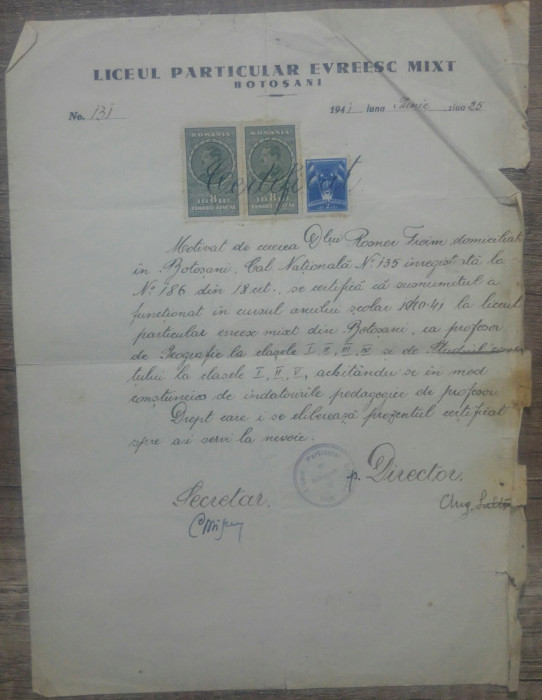 LICEUL PARTICULAR EVREESC MIXT
BOTOȘANI
No. 131 1941 luna Iunie ziua 25
ROMANIA ROMANIA
LEI 8 LEI LEI 8 LEI
Certificat
Motivat de cererea Dlui Rosner Froim domiciliat
în Botoșani, Cal. Națională No 135 înregistrată la
No 186 din 18 crt., se certifică că susnumitul a
funcționat în cursul anului școlar 1940-41 la liceul
particular evreesc mixt din Botoșani, ca profesor
de Geografie la clasele I, II, III, IV și de Studiul
tului la clasele I, II, V, achitându se în mod
conștiincios de îndatoririle pedagogice de profesor
Drept care i se eliberează prezentul certificat
spre a-i servi la nevoie.
p. Director.
Secretar.